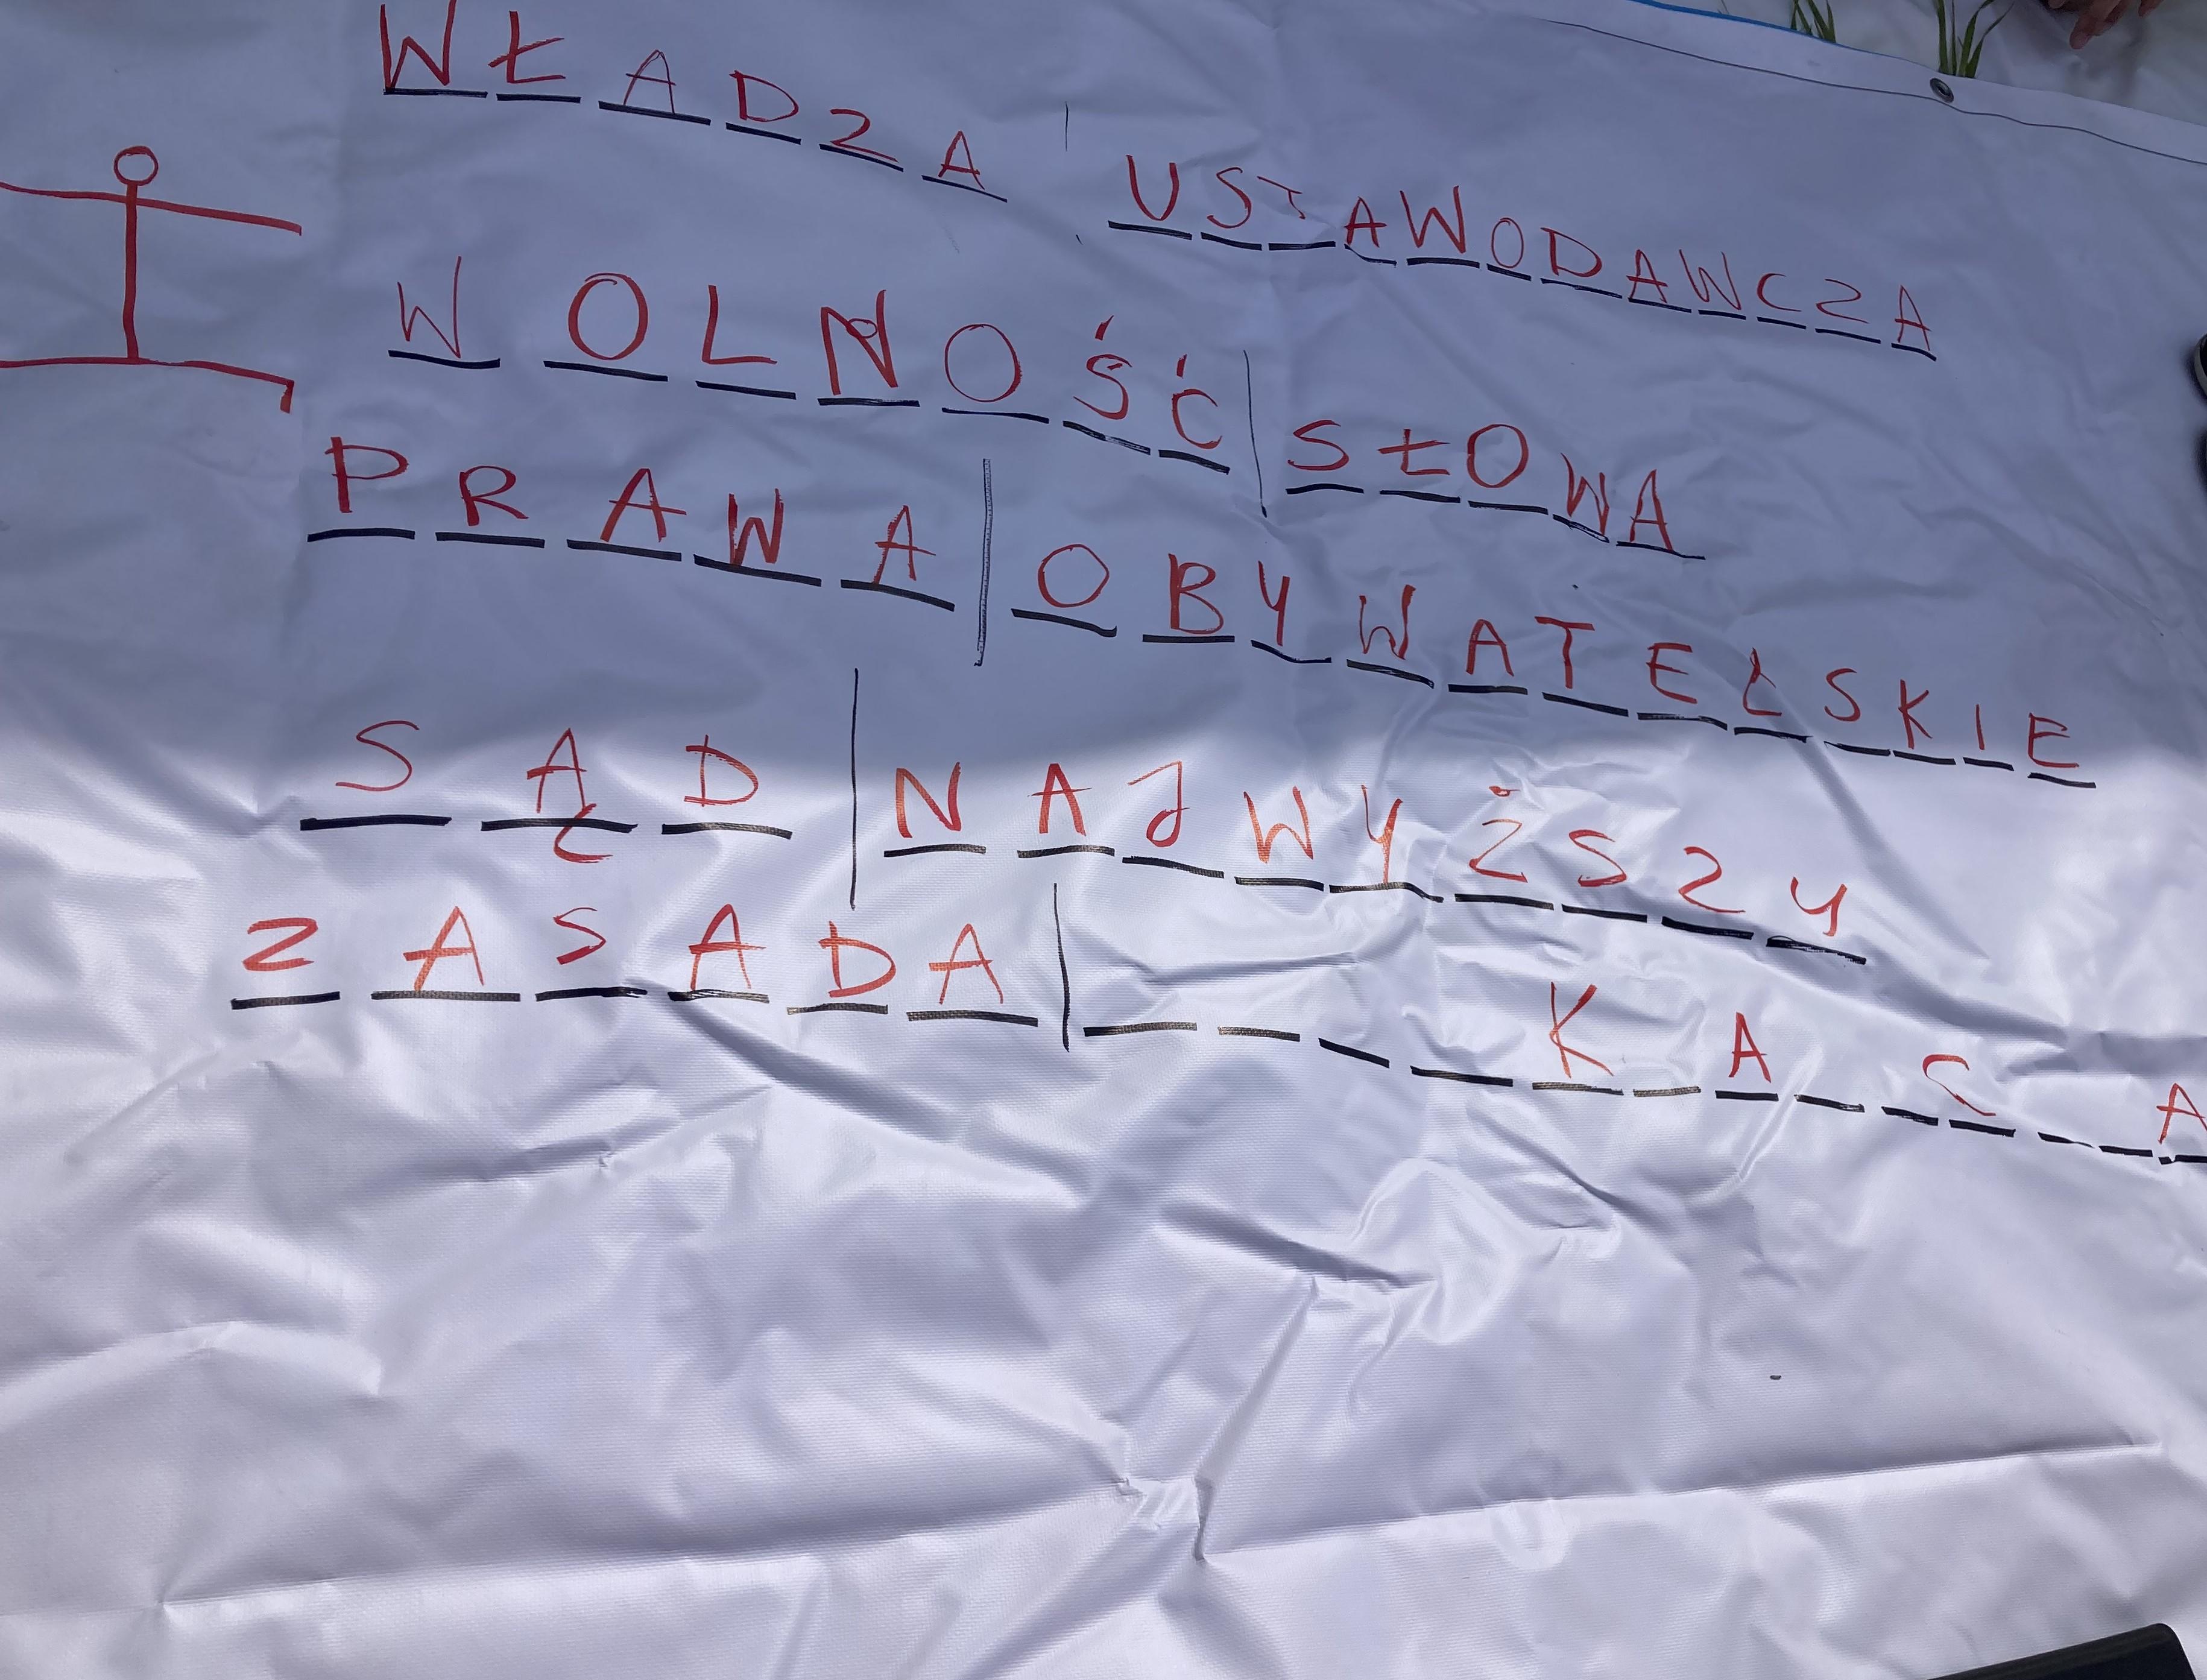 WŁADZA | USTAWODAWCZA
WOLNOŚĆ | SŁOWA
PRAWA | OBYWATELSKIE
SĄD | NAJWYŻSZY
ZASADA | _ _ _ _ K _ A _ _ C _ _ A